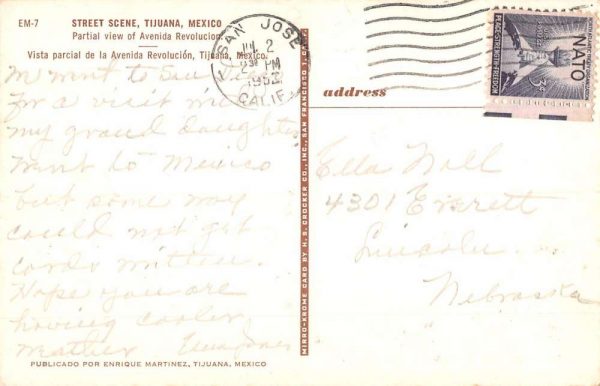 EM-7
STREET SCENE, TIJUANA, MEXICO
Partial view of Avenida Revolucion
Vista parcial de la Avenida Revolución, Tijuana, Mexico.
SAN JOSE
2
PM
CALIF.
NATO
3¢
for a visit
my grand daughter
went to Mexico
but some way
could not get
cards written.
Hope you are
having cooler
weather
PUBLICADO POR ENRIQUE MARTINEZ, TIJUANA, MEXICO
MIRRO-KROME CARD BY H. S. CROCKER CO., INC., SAN FRANCISCO 1, CAL.
address
Ella Noll
4301 Everett
Lincoln
Nebraska